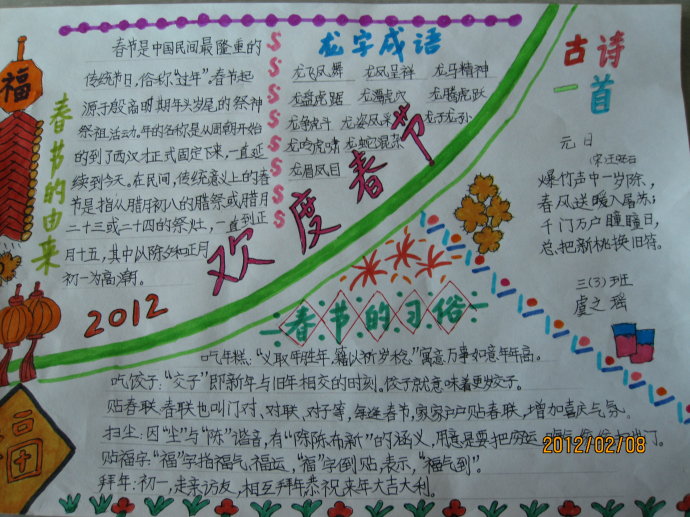 福
春节的由来
春节是中国民间最隆重的
传统节日,俗称"过年"。春节起
源于殷商时期年头岁尾的祭神
祭祖活动.年的名称是从周朝开始
的到了西汉才正式固定下来,一直延
续到今天。在民间,传统意义上的春
节是指从腊月初八的腊祭或腊月
二十三或二十四的祭灶,一直到正
月十五,其中以除夕和正月
初一为高潮。
2012
龙字成语
龙飞凤舞 龙凤呈祥 龙马精神
龙盘虎踞 龙潭虎穴 龙腾虎跃
龙争虎斗 龙姿凤采 龙子龙孙
龙吟虎啸 龙蛇混杂
龙眉凤目
欢度春节
古诗
一首
元日
(宋)王安石
爆竹声中一岁除,
春风送暖入屠苏;
千门万户瞳瞳日,
总把新桃换旧符。
三(3)班
虞之瑶
春节的习俗
吃年糕:"义取年胜年,籍以祈岁稔"寓意万事如意年年高。
吃饺子:"交子"即新年与旧年相交的时刻。饺子就意味着更岁交子。
贴春联:春联也叫门对、对联、对子等,每逢春节,家家户户贴春联,增加喜庆气氛。
扫尘:因"尘"与"陈"谐音,有"除陈布新"的涵义,用意是要把 出门。
贴福字:"福"字指福气,福运,"福"字倒贴,表示,"福气到"。
拜年:初一,走亲访友,相互拜年恭祝来年大吉大利。
福
2012/02/08